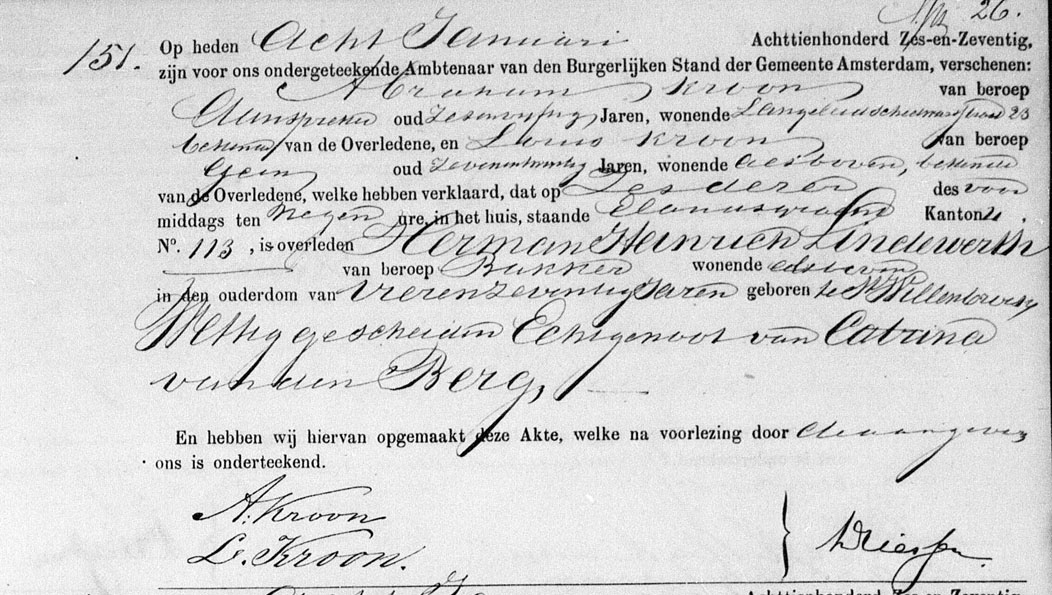 26.
151. Op heden Acht Januari Achttienhonderd Zes-en-Zeventig,
zijn voor ons ondergeteekende Ambtenaar van den Burgerlijken Stand der Gemeente Amsterdam, verschenen:
Abraham Kroon van beroep
Aanspreker oud Jaren, wonende 23
bekende van de Overledene, en Louis Kroon van beroep
Geen oud Zevenentwintig Jaren, wonende alsboven, bekende
van de Overledene, welke hebben verklaard, dat op Zes dezer des voor
middags ten Negen ure, in het huis, staande Elandsgracht Kanton
No. 113, is overleden Herman Heinrich Lindewerth
van beroep Bakker wonende alsboven
in den ouderdom van Vierenzeventig Jaren geboren te
Wettig gescheiden Echtgenoot van Catrina
van den Berg,
En hebben wij hiervan opgemaakt deze Akte, welke na voorlezing door de aangevers
ons is onderteekend.
A. Kroon
L. Kroon.
Achttienhonderd Zes-en-Zeventig,